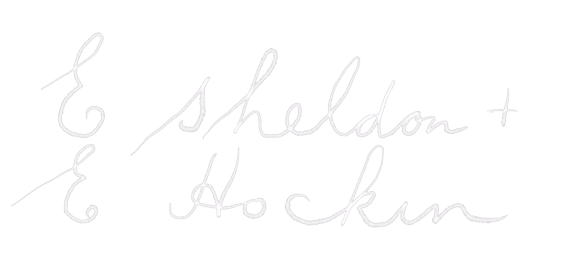 E Sheldon +
E Hockin